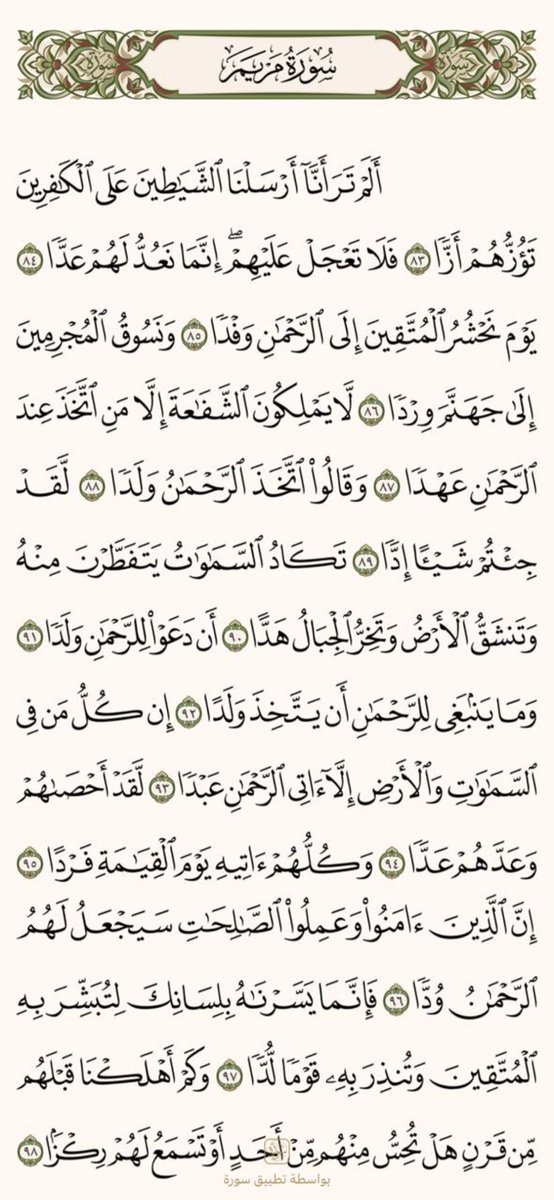 سُورَةُ مَرْيَمَ
أَلَمْ تَرَ أَنَّآ أَرْسَلْنَا ٱلشَّيَٰطِينَ عَلَى ٱلْكَٰفِرِينَ
تَؤُزُّهُمْ أَزًّا ٨٣ فَلَا تَعْجَلْ عَلَيْهِمْ ۖ إِنَّمَا نَعُدُّ لَهُمْ عَدًّا ٨٤
يَوْمَ نَحْشُرُ ٱلْمُتَّقِينَ إِلَى ٱلرَّحْمَٰنِ وَفْدًا ٨٥ وَنَسُوقُ ٱلْمُجْرِمِينَ
إِلَىٰ جَهَنَّمَ وِرْدًا ٨٦ لَّا يَمْلِكُونَ ٱلشَّفَٰعَةَ إِلَّا مَنِ ٱتَّخَذَ عِندَ
ٱلرَّحْمَٰنِ عَهْدًا ٨٧ وَقَالُوا۟ ٱتَّخَذَ ٱلرَّحْمَٰنُ وَلَدًا ٨٨ لَّقَدْ
جِئْتُمْ شَيْـًٔا إِدًّا ٨٩ تَكَادُ ٱلسَّمَٰوَٰتُ يَتَفَطَّرْنَ مِنْهُ
وَتَنشَقُّ ٱلْأَرْضُ وَتَخِرُّ ٱلْجِبَالُ هَدًّا ٩٠ أَن دَعَوْا۟ لِلرَّحْمَٰنِ وَلَدًا ٩١
وَمَا يَنۢبَغِى لِلرَّحْمَٰنِ أَن يَتَّخِذَ وَلَدًا ٩٢ إِن كُلُّ مَن فِى
ٱلسَّمَٰوَٰتِ وَٱلْأَرْضِ إِلَّآ ءَاتِى ٱلرَّحْمَٰنِ عَبْدًا ٩٣ لَّقَدْ أَحْصَىٰهُمْ
وَعَدَّهُمْ عَدًّا ٩٤ وَكُلُّهُمْ ءَاتِيهِ يَوْمَ ٱلْقِيَٰمَةِ فَرْدًا ٩٥
إِنَّ ٱلَّذِينَ ءَامَنُوا۟ وَعَمِلُوا۟ ٱلصَّٰلِحَٰتِ سَيَجْعَلُ لَهُمُ
ٱلرَّحْمَٰنُ وُدًّا ٩٦ فَإِنَّمَا يَسَّرْنَٰهُ بِلِسَانِكَ لِتُبَشِّرَ بِهِ
ٱلْمُتَّقِينَ وَتُنذِرَ بِهِۦ قَوْمًا لُّدًّا ٩٧ وَكَمْ أَهْلَكْنَا قَبْلَهُم
مِّن قَرْنٍ هَلْ تُحِسُّ مِنْهُم مِّنْ أَحَدٍ أَوْ تَسْمَعُ لَهُمْ رِكْزًۢا ٩٨
بواسطة تطبيق سورة